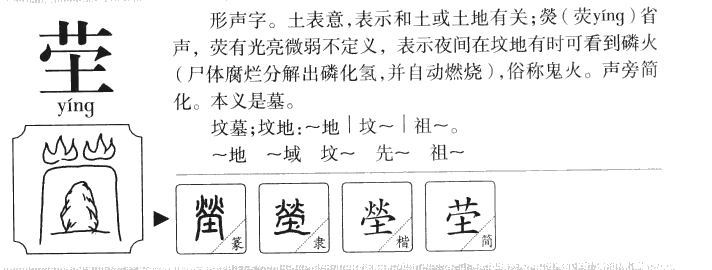 茔
yíng
形声字。土表意,表示和土或土地有关;熒(荧yíng)省
声，荧有光亮微弱不定义，表示夜间在坟地有时可看到磷火
(尸体腐烂分解出磷化氢,并自动燃烧),俗称鬼火。声旁简
化。本义是墓。
坟墓;坟地:～地｜坟～｜祖～。
～地　～域　坟～　先～　祖～
塋 篆
塋 隶
塋 楷
茔 简